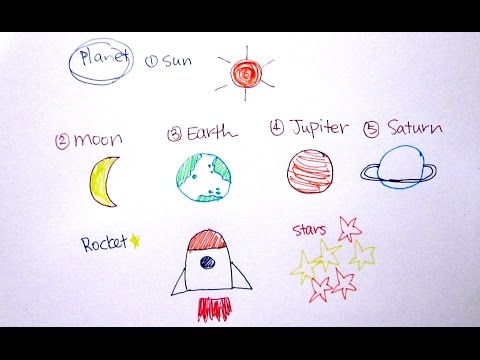 Planet ① Sun
② moon ③ Earth ④ Jupiter ⑤ Saturn
Rocket stars